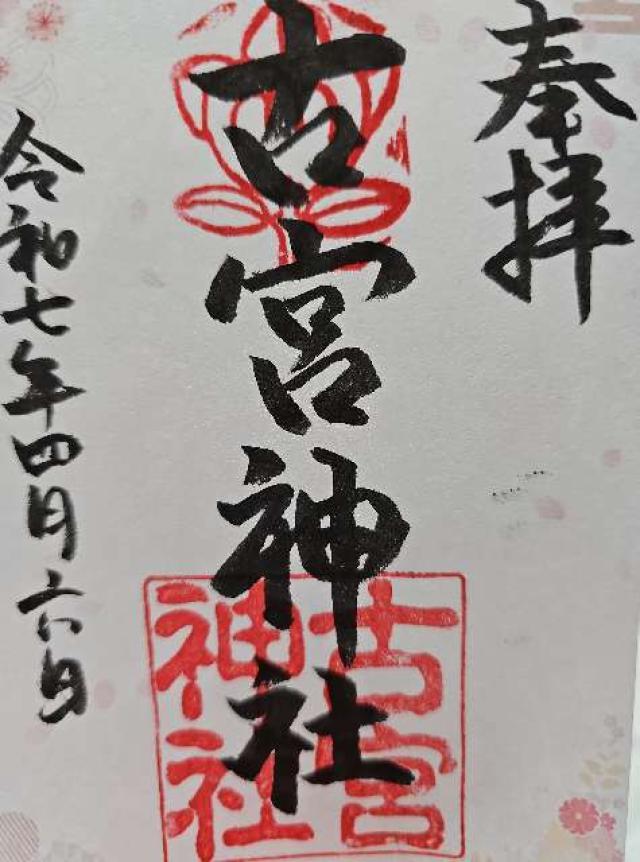 奉拝
古宮神社
古宮
神社
令和七年四月六日